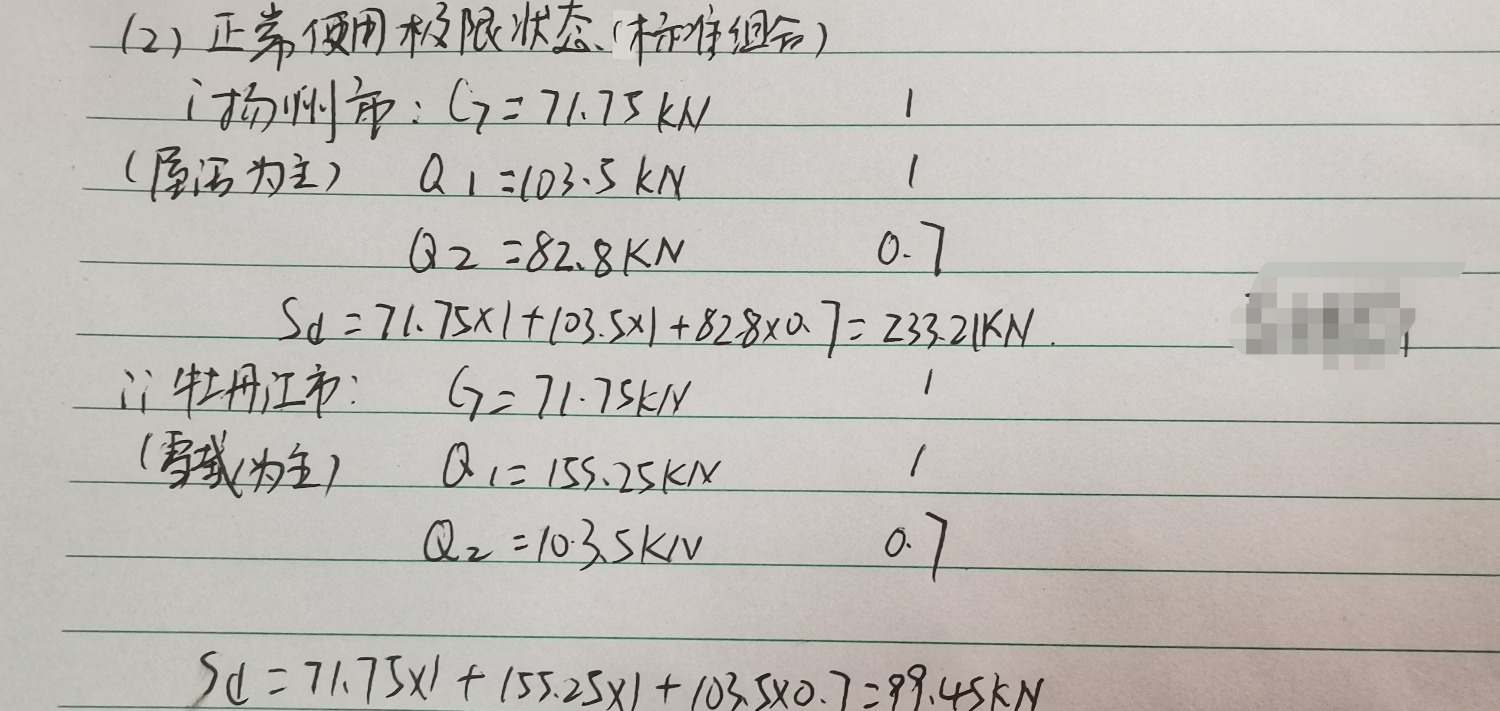 (2) 正常使用极限状态(标准组合)
i 扬州市: G=71.75KN 1
(屋活为主) Q1=103.5KN 1
Q2=82.8KN 0.7
Sd=71.75×1+103.5×1+82.8×0.7=233.21KN.
ii 牡丹江市: G=71.75KN 1
(雪载为主) Q1=155.25KN 1
Q2=103.5KN 0.7
Sd=71.75×1+155.25×1+103.5×0.7=99.45KN